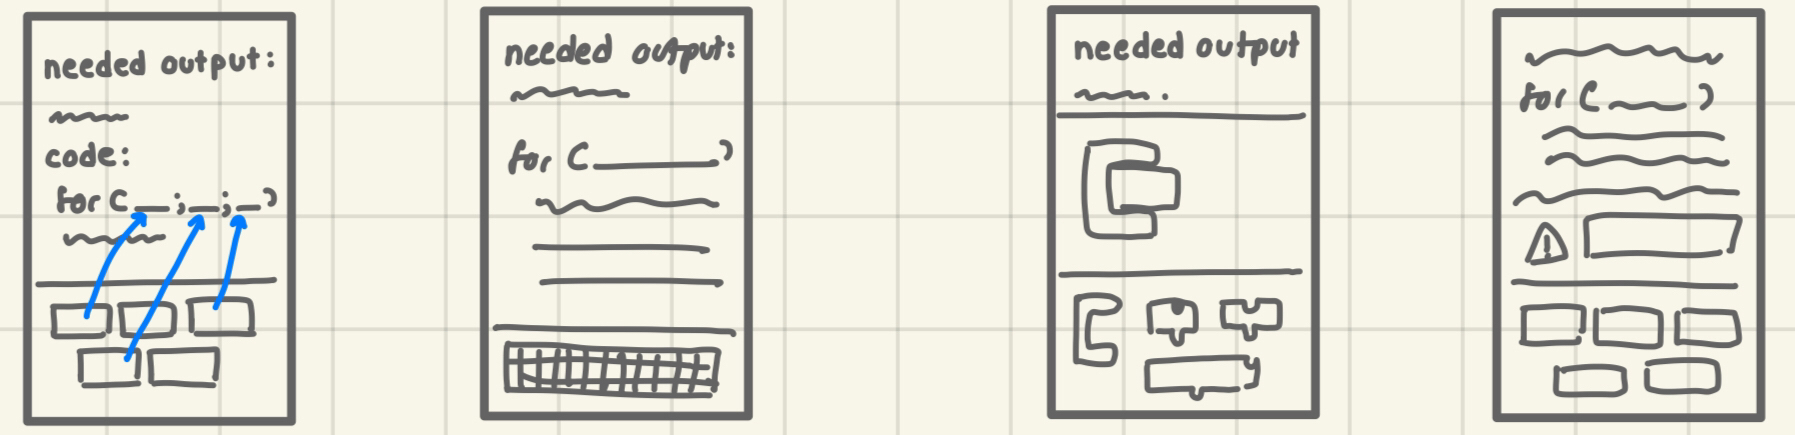 needed output:
code:
for ( __ ; __ ; __ )
needed output:
for ( ______ )
needed output
for ( ____ )
!